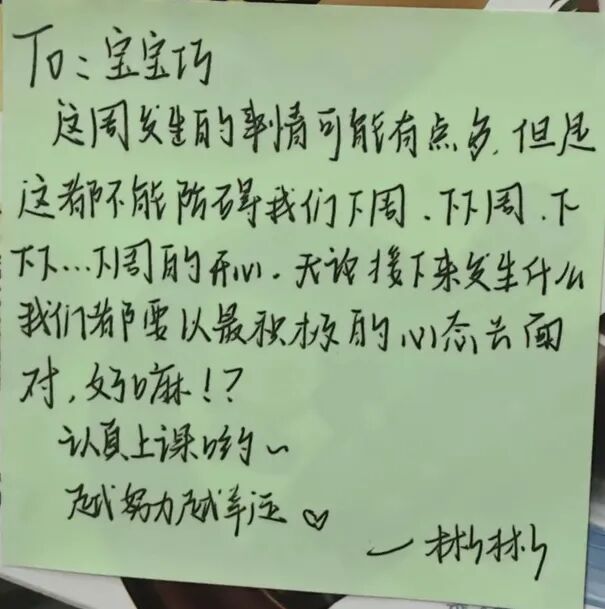 To：宝宝巧
这周发生的事情可能有点多，但是
这都不能阻碍我们下周、下下周、下
下下…下周的开心。无论接下来发生什么
我们都要以最积极的心态去面
对，好嘛！？
认真上课哟～
越努力越幸运♡
一彬彬